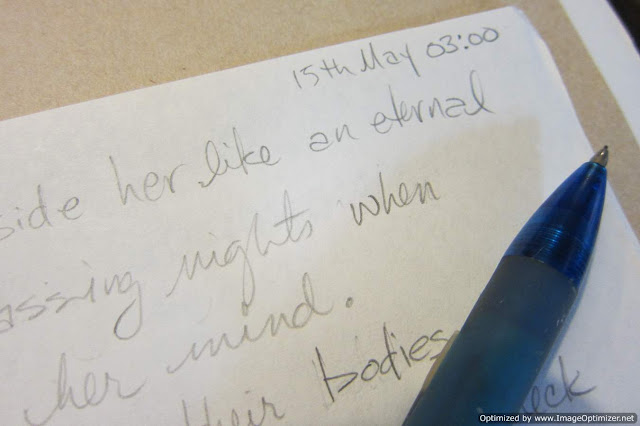 15th May 03:00
side her like an eternal
assing nights when
her mind.
their bodies eck
Optimized by www.ImageOptimizer.net